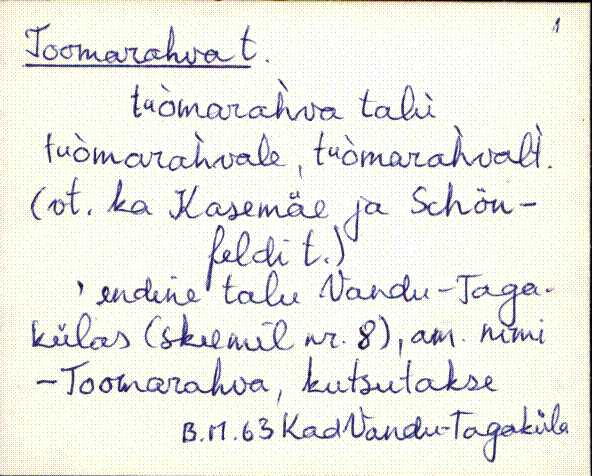 1
Toomarahva t.
tuòmarah̀va talù
tuòmarah̀vale, tuòmarah̀valt̀.
(vt. ka Kasemäe ja Schön-
feldi t.)
, endine talu Vandu-Taga-
külas (skeemil nr. 8), am. nimi
-Toomarahva, kutsutakse
B.M. 63 Kad Vandu-Tagaküla